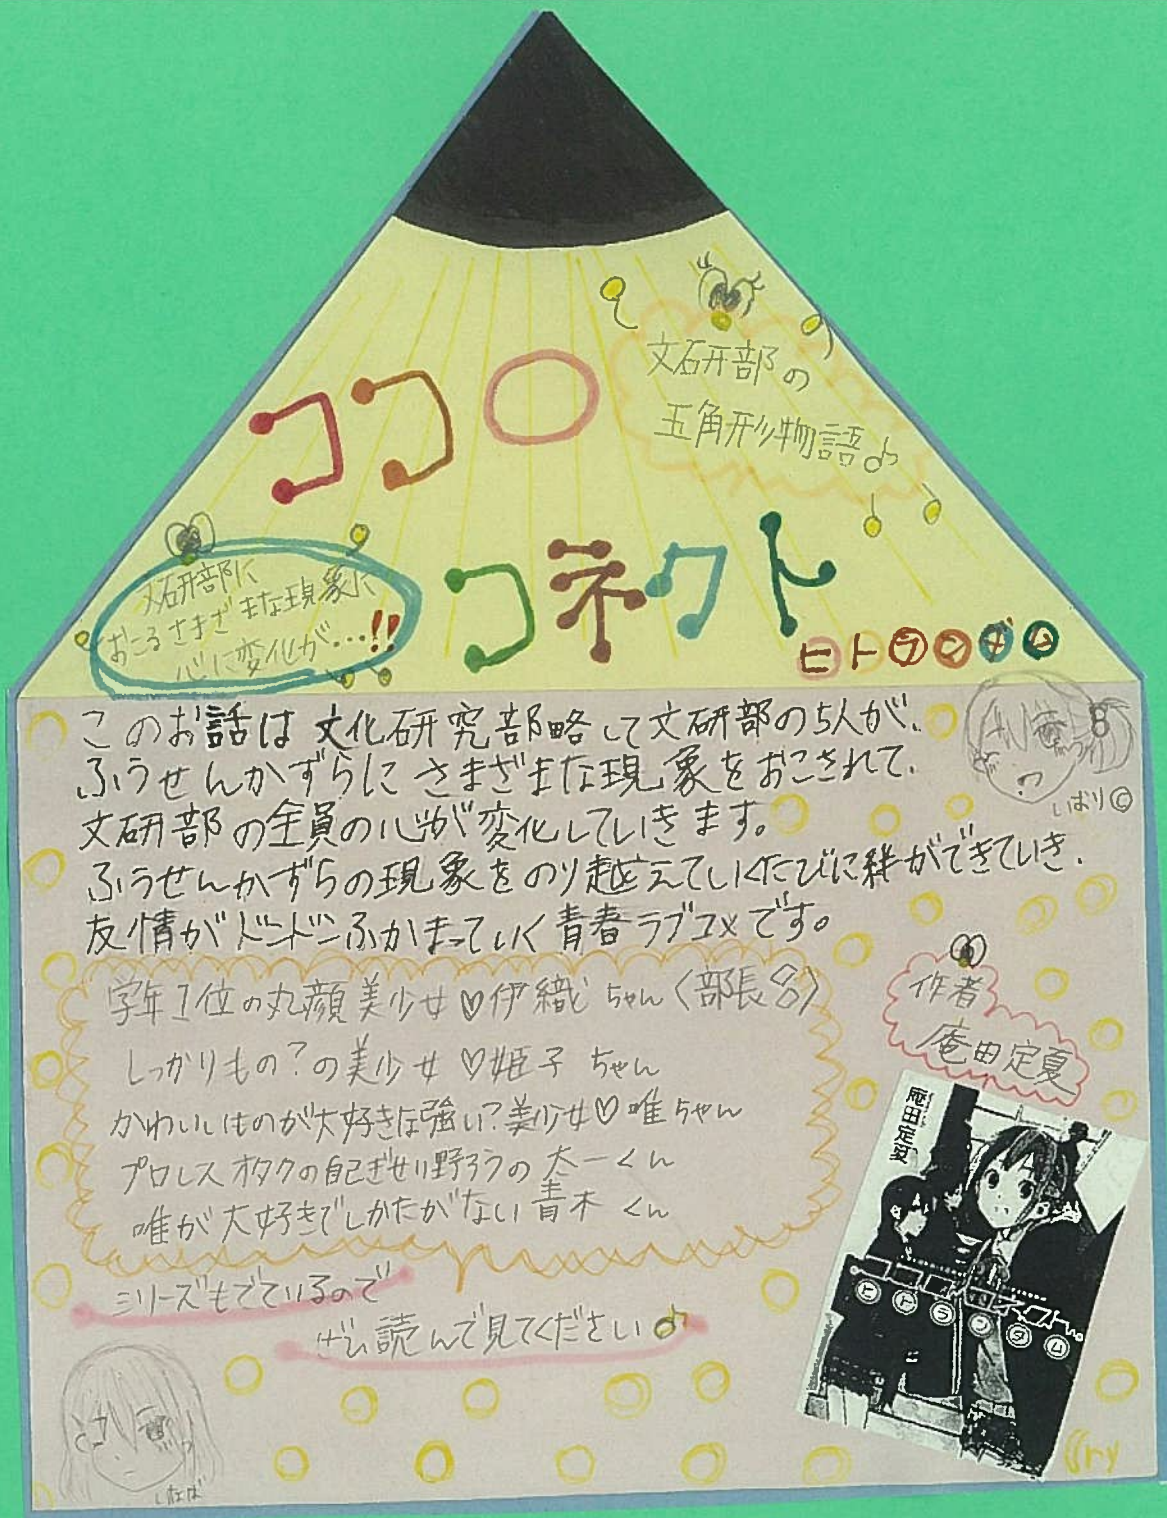 文研部の
五角形物語♪
ココロ
コネクト
ヒトランダム
文研部に
おこるさまざまな現象に
心に変化が…!!
このお話は文化研究部略して文研部の5人が、
ふうせんかずらにさまざまな現象をおこされて、
文研部の全員の心が変化していきます。
ふうせんかずらの現象をのり越えていくたびに絆ができていき、
友情がドンドンふかまっていく青春ラブコメです。
いおり©
学年1位の丸顔美少女♡伊織ちゃん〈部長〉
しっかりもの?の美少女♡姫子ちゃん
かわいいものが大好きな強い?美少女♡唯ちゃん
プロレスオタクの自己ぎせい野ろうの太一くん
唯が大好きでしかたがない青木くん
作者
庵田定夏
シリーズもでているので
ぜひ読んで見てください♪
庵田定夏
ヒトランダム
いなば